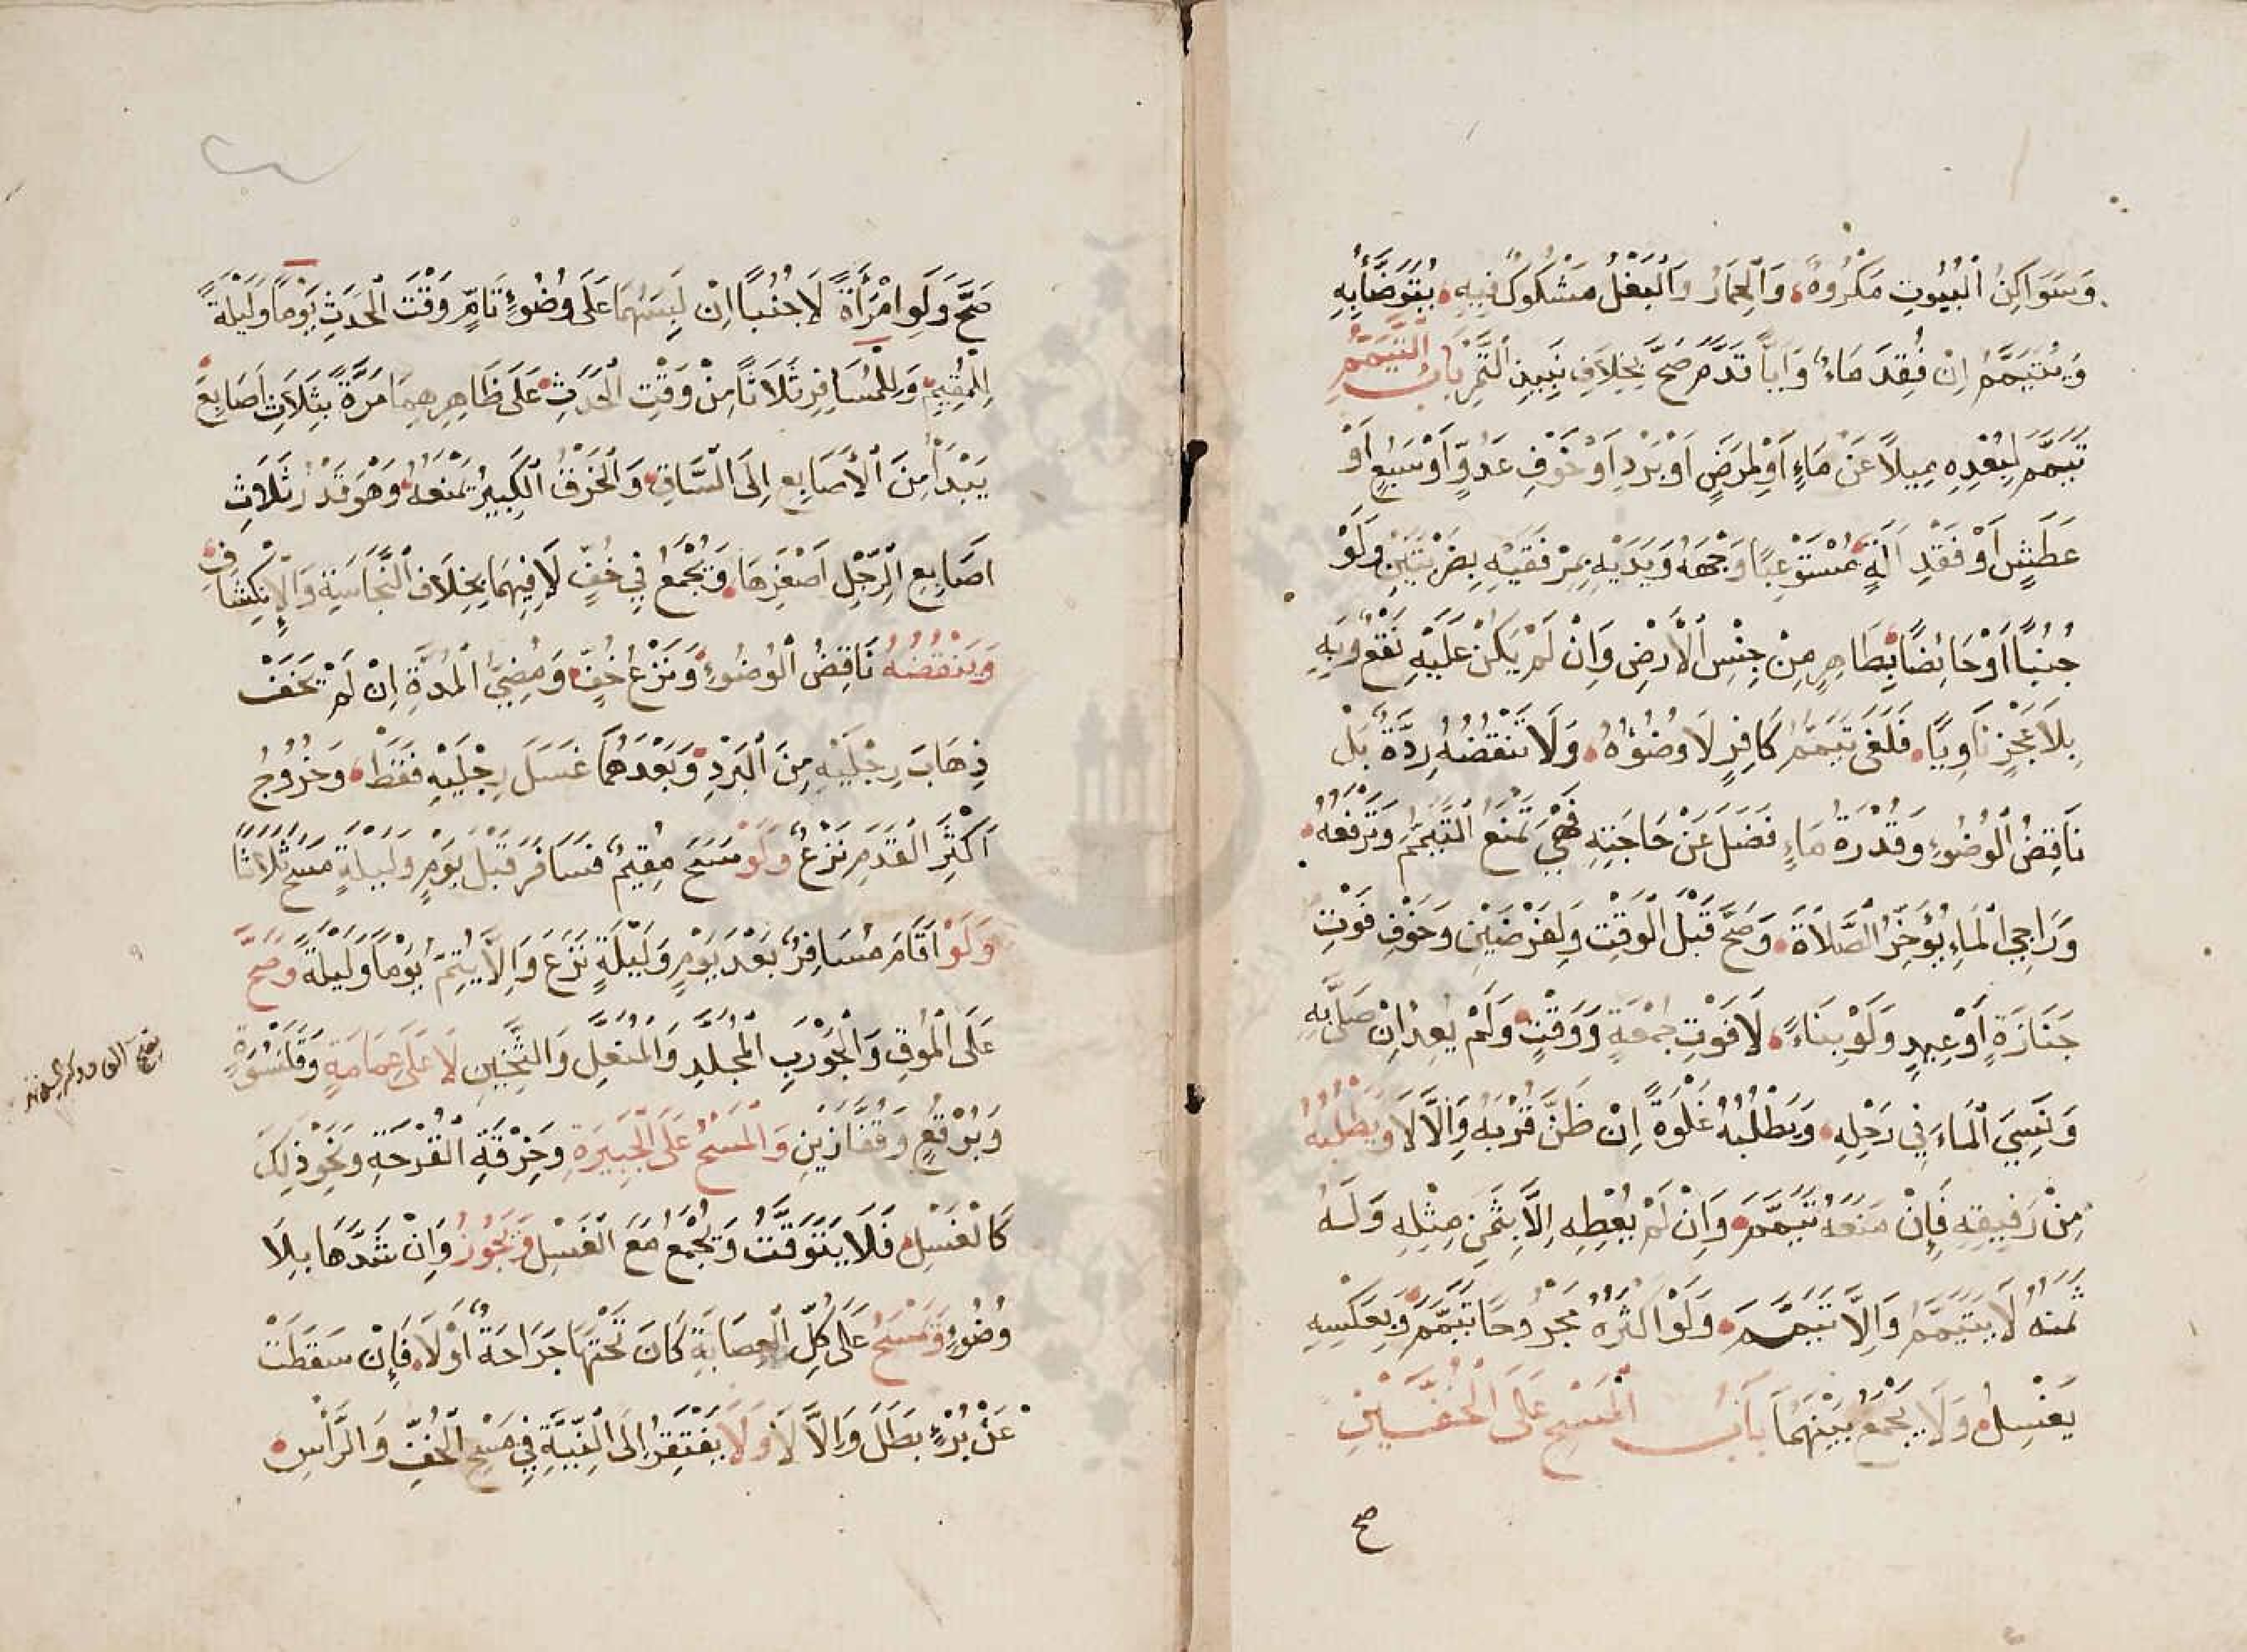 وَسَوَاكِنُ الْبُيُوتِ مَكْرُوهٌ وَالْحِمَارُ وَالْبَغْلُ مَشْكُوكٌ فِيهِ يُتَوَضَّأُ بِهِ
وَيُتَيَمَّمُ اِنْ فُقِدَ مَاءٌ وَاَيًّا قَدَّمَ صَحَّ بِخِلَافِ نَبِيذِ التَّمْرِ بَابُ التَّيَمُّمِ
تَيَمَّمَ لِبُعْدِهِ مِيلًا عَنْ مَاءٍ اَوْ لِمَرَضٍ اَوْ بَرْدٍ اَوْ خَوْفِ عَدُوٍّ اَوْ سَبُعٍ اَوْ
عَطَشٍ اَوْ فَقْدِ اٰلَةٍ مُسْتَوْعِبًا وَجْهَهُ وَيَدَيْهِ بِمِرْفَقَيْهِ بِضَرْبَتَيْنِ وَلَوْ
جُنُبًا اَوْ حَائِضًا بِطَاهِرٍ مِنْ جِنْسِ الْاَرْضِ وَاِنْ لَمْ يَكُنْ عَلَيْهِ نَقْعٌ وَبِهِ
بِلَا عَجْزٍ نَاوِيًا فَلَغَى تَيَمُّمُ كَافِرٍ لَا وُضُوْءُهُ وَلَا تَنْقُضُهُ رِدَّةٌ بَلْ
نَاقِضُ الْوُضُوءِ وَقُدْرَةُ مَاءٍ فَضَلَ عَنْ حَاجَتِهِ فَهِيَ تَمْنَعُ التَّيَمُّمَ وَتَرْفَعُهُ
وَرَاجِي الْمَاءِ يُؤَخِّرُ الصَّلَاةَ وَصَحَّ قَبْلَ الْوَقْتِ وَلِفَرْضَيْنِ وَخَوْفِ فَوْتِ
جَنَازَةٍ اَوْ عِيدٍ وَلَوْ بِنَاءً لَا فَوْتِ جُمْعَةٍ وَوَقْتٍ وَلَمْ يُعِدْ اِنْ صَلَّى بِهِ
وَنَسِيَ الْمَاءَ فِي رَحْلِهِ وَيَطْلُبُهُ غَلْوَةً اِنْ ظَنَّ قُرْبَهُ وَاِلَّا لَا وَيَطْلُبُهُ
مِنْ رَفِيقِهِ فَاِنْ مَنَعَهُ تَيَمَّمَ وَاِنْ لَمْ يُعْطِهِ اِلَّا بِثَمَنِ مِثْلِهِ وَلَهُ
ثَمَنُهُ لَا يَتَيَمَّمُ وَاِلَّا تَيَمَّمَ وَلَوْ اَكْثَرُهُ مَجْرُوحًا تَيَمَّمَ وَبِعَكْسِهِ
يَغْسِلُ وَلَا يَجْمَعُ بَيْنَهُمَا بَابُ الْمَسْحِ عَلَى الْخُفَّيْنِ
صح
صَحَّ وَلَوِ امْرَأَةً لَا جُنُبًا اِنْ لَبِسَهُمَا عَلَى وُضُوْءٍ تَامٍّ وَقْتَ الْحَدَثِ يَوْمًا وَلَيْلَةً
لِلْمُقِيمِ وَلِلْمُسَافِرِ ثَلَاثًا مِنْ وَقْتِ الْحَدَثِ عَلَى ظَاهِرِهِمَا مَرَّةً بِثَلَاثِ اَصَابِعَ
يَبْدَأُ مِنَ الْاَصَابِعِ اِلَى السَّاقِ وَالْخَرْقُ الْكَبِيرُ يَمْنَعُهُ وَهُوَ قَدْرُ ثَلَاثِ
اَصَابِعِ الرِّجْلِ اَصْغَرِهَا وَيُجْمَعُ فِي خُفٍّ لَا فِيهِمَا بِخِلَافِ النَّجَاسَةِ وَالْاِنْكِشَافِ
وَيَنْقُضُهُ نَاقِضُ الْوُضُوءِ وَنَزْعُ خُفٍّ وَمُضِيُّ الْمُدَّةِ اِنْ لَمْ يَخَفْ
ذَهَابَ رِجْلَيْهِ مِنَ الْبَرْدِ وَبَعْدَهُمَا غَسَلَ رِجْلَيْهِ فَقَطْ وَخُرُوجُ
اَكْثَرِ الْقَدَمِ نَزْعٌ وَلَوْ مَسَحَ مُقِيمٌ فَسَافَرَ قَبْلَ يَوْمٍ وَلَيْلَةٍ مَسَحَ ثَلَاثًا
وَلَوْ اَقَامَ مُسَافِرٌ بَعْدَ يَوْمٍ وَلَيْلَةٍ نَزَعَ وَاِلَّا يُتِمُّ يَوْمًا وَلَيْلَةً وَصَحَّ
عَلَى الْمُوقِ وَالْجَوْرَبِ الْمُجَلَّدِ وَالْمُنَعَّلِ وَالثَّخِينِ لَا عَلَى عِمَامَةٍ وَقَلَنْسُوَةٍ
وَبُرْقُعٍ وَقُفَّازَيْنِ وَالْمَسْحُ عَلَى الْجَبِيرَةِ وَخِرْقَةِ الْقَرْحَةِ وَنَحْوِ ذٰلِكَ
كَالْغَسْلِ فَلَا يَتَوَقَّتُ وَيُجْمَعُ مَعَ الْغَسْلِ وَيَجُوزُ وَاِنْ شَدَّهَا بِلَا
وُضُوْءٍ وَيَمْسَحُ عَلَى كُلِّ الْعِصَابَةِ كَانَ تَحْتَهَا جَرَاحَةٌ اَوْ لَا فَاِنْ سَقَطَتْ
عَنْ بُرْءٍ بَطَلَ وَاِلَّا لَا وَلَا يَفْتَقِرُ اِلَى النِّيَّةِ فِي مَسْحِ الْخُفِّ وَالرَّأْسِ